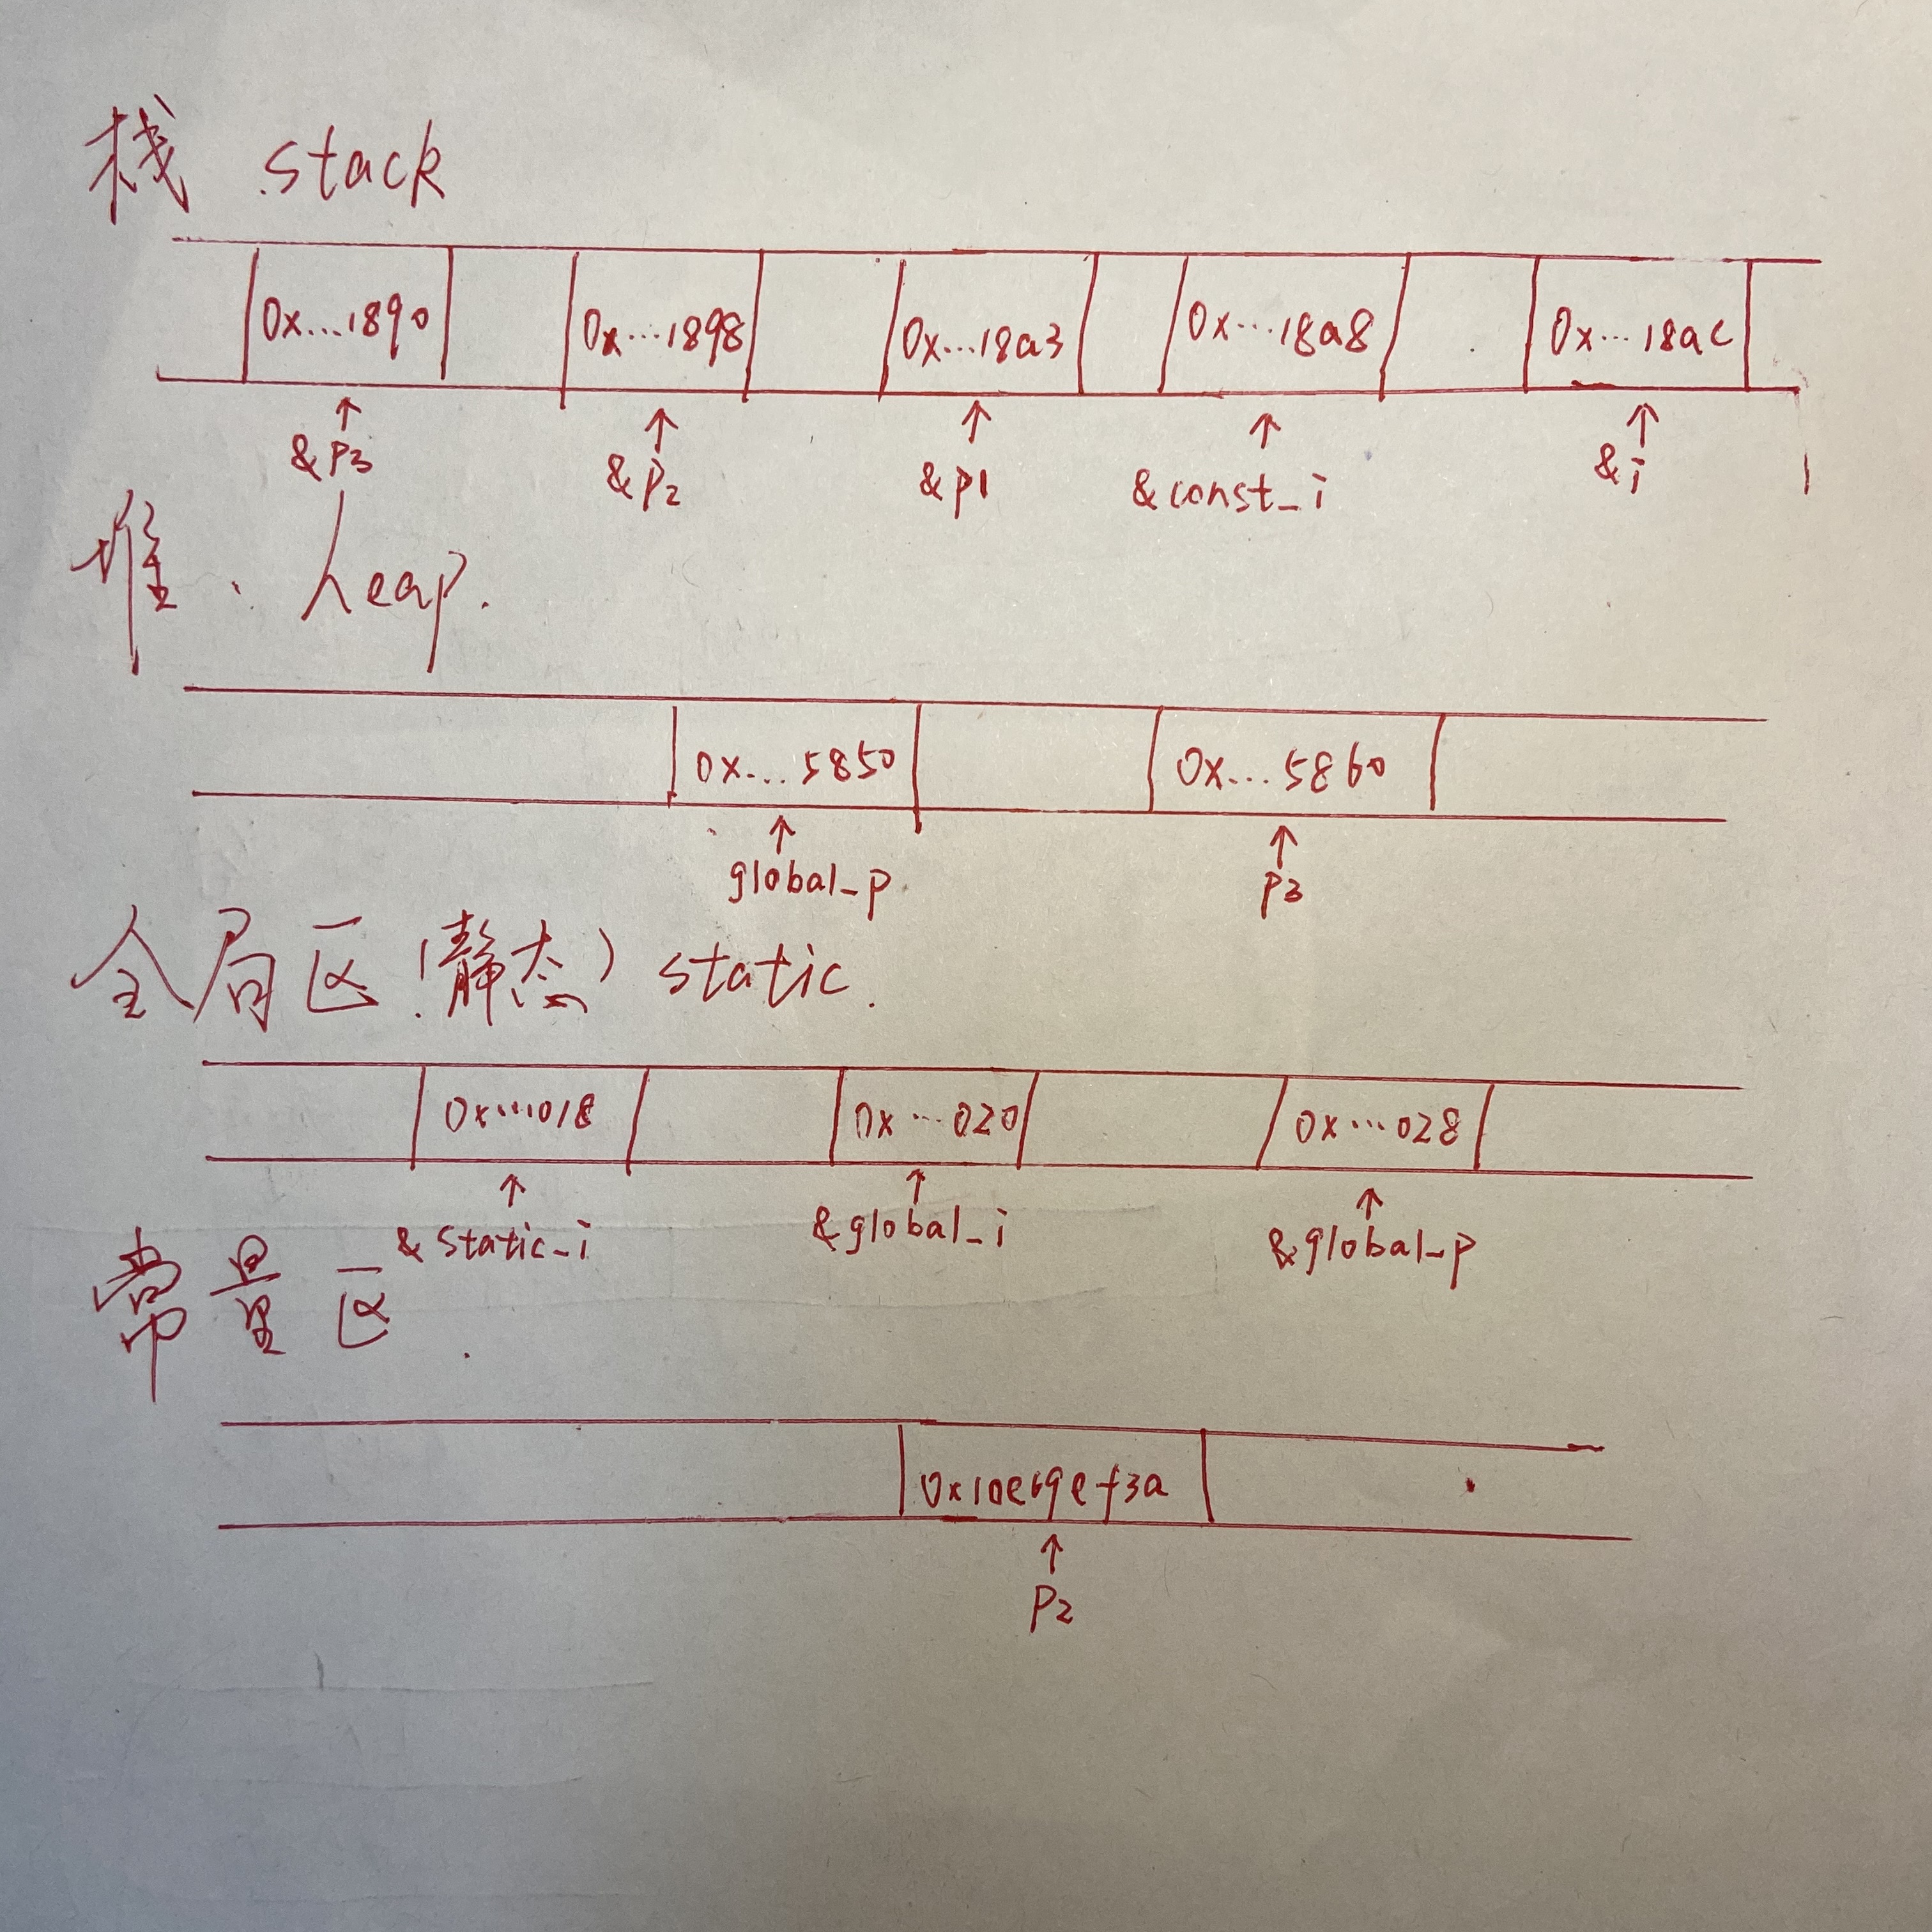 栈 stack
0x...1890 0x...1898 0x...18a3 0x...18a8 0x...18ac
&p3 &p2 &p1 &const_i &i
堆、heap.
0x...5850 0x...5860
global_p p3
全局区(静态) static.
0x...018 0x...020 0x...028
&static_i &global_i &global_p
常量区.
0x10e69ef3a
p2